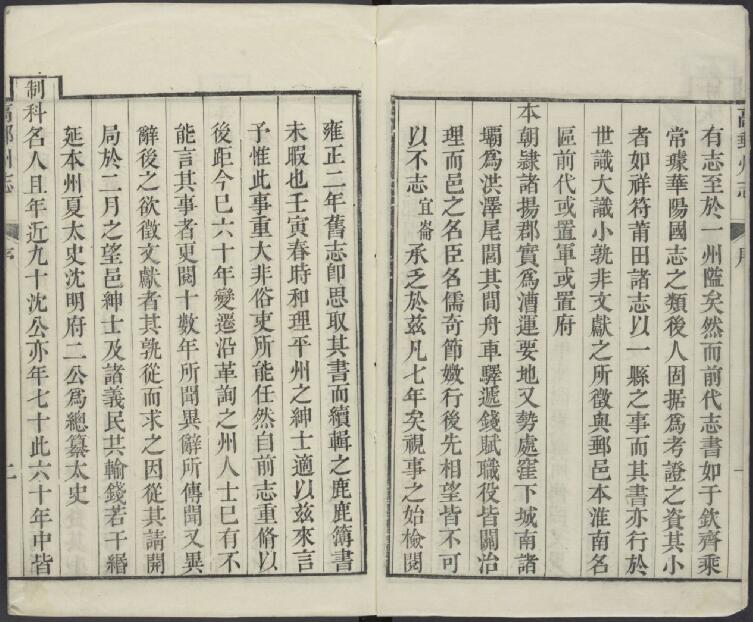 有志至於一州隘矣然而前代志書如于欽齊乘
常璩華陽國志之類後人固据爲考證之資其小
者如祥符莆田諸志以一縣之事而其書亦行於
世識大識小孰非文獻之所徵與郵邑本淮南名
區前代或置軍或置府
本朝隷諸揚郡實爲漕運要地又勢處窪下城南諸
壩爲洪澤尾閭其間舟車驛遞錢賦職役皆關治
理而邑之名臣名儒奇節媺行後先相望皆不可
以不志宜崙承乏於兹凡七年矣視事之始檢閱
雍正二年舊志卽思取其書而續輯之鹿鹿簿書
未暇也壬寅春時和理平州之紳士適以兹來言
予惟此事重大非俗吏所能任然自前志重脩以
後距今巳六十年變遷沿革詢之州人士巳有不
能言其事者更閱十數年所聞異辭所傳聞又異
辭後之欲徵文獻者其孰從而求之因從其請開
局於二月之望邑紳士及諸義民共輸錢若干緡
延本州夏太史沈明府二公爲總纂太史
制科名人且年近九十沈公亦年七十此六十年中皆
高郵州志
序
二